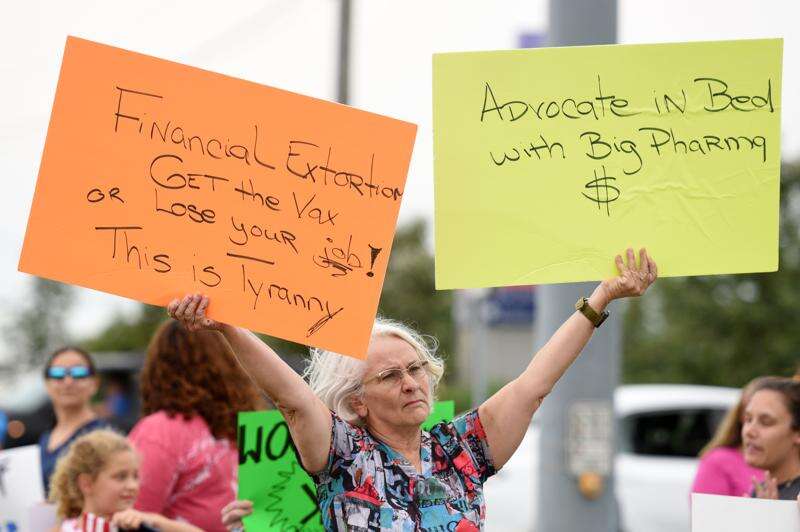 Financial Extortion
GET the Vax
OR Lose your job!
This is Tyranny
Advocate in Bed
with Big Pharma
$
WO